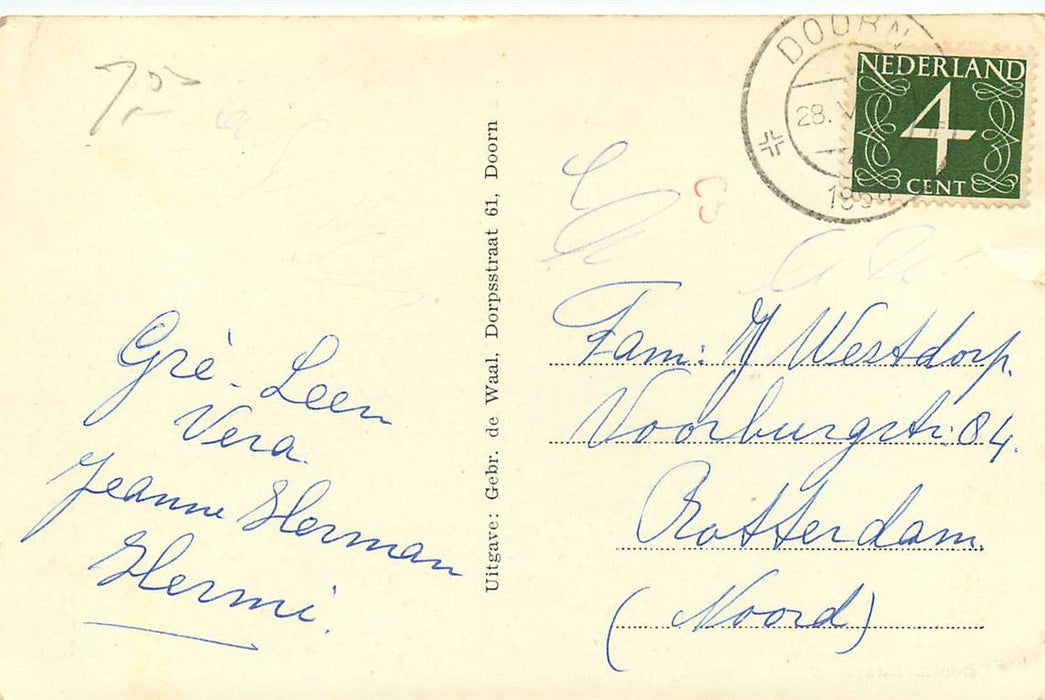 Grè - Leen
Vera.
Jeanne Herman
Hermi.
Uitgave: Gebr. de Waal, Dorpsstraat 61, Doorn
DOORN
28.
NEDERLAND
4
CENT
Fam: Westdorp.
Voorburgstr: 84.
Rotterdam.
(Noord)